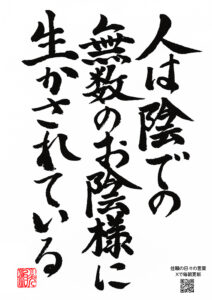 人は陰での
無数のお陰様に
生かされている
住職の日々の言葉
Xで毎朝更新